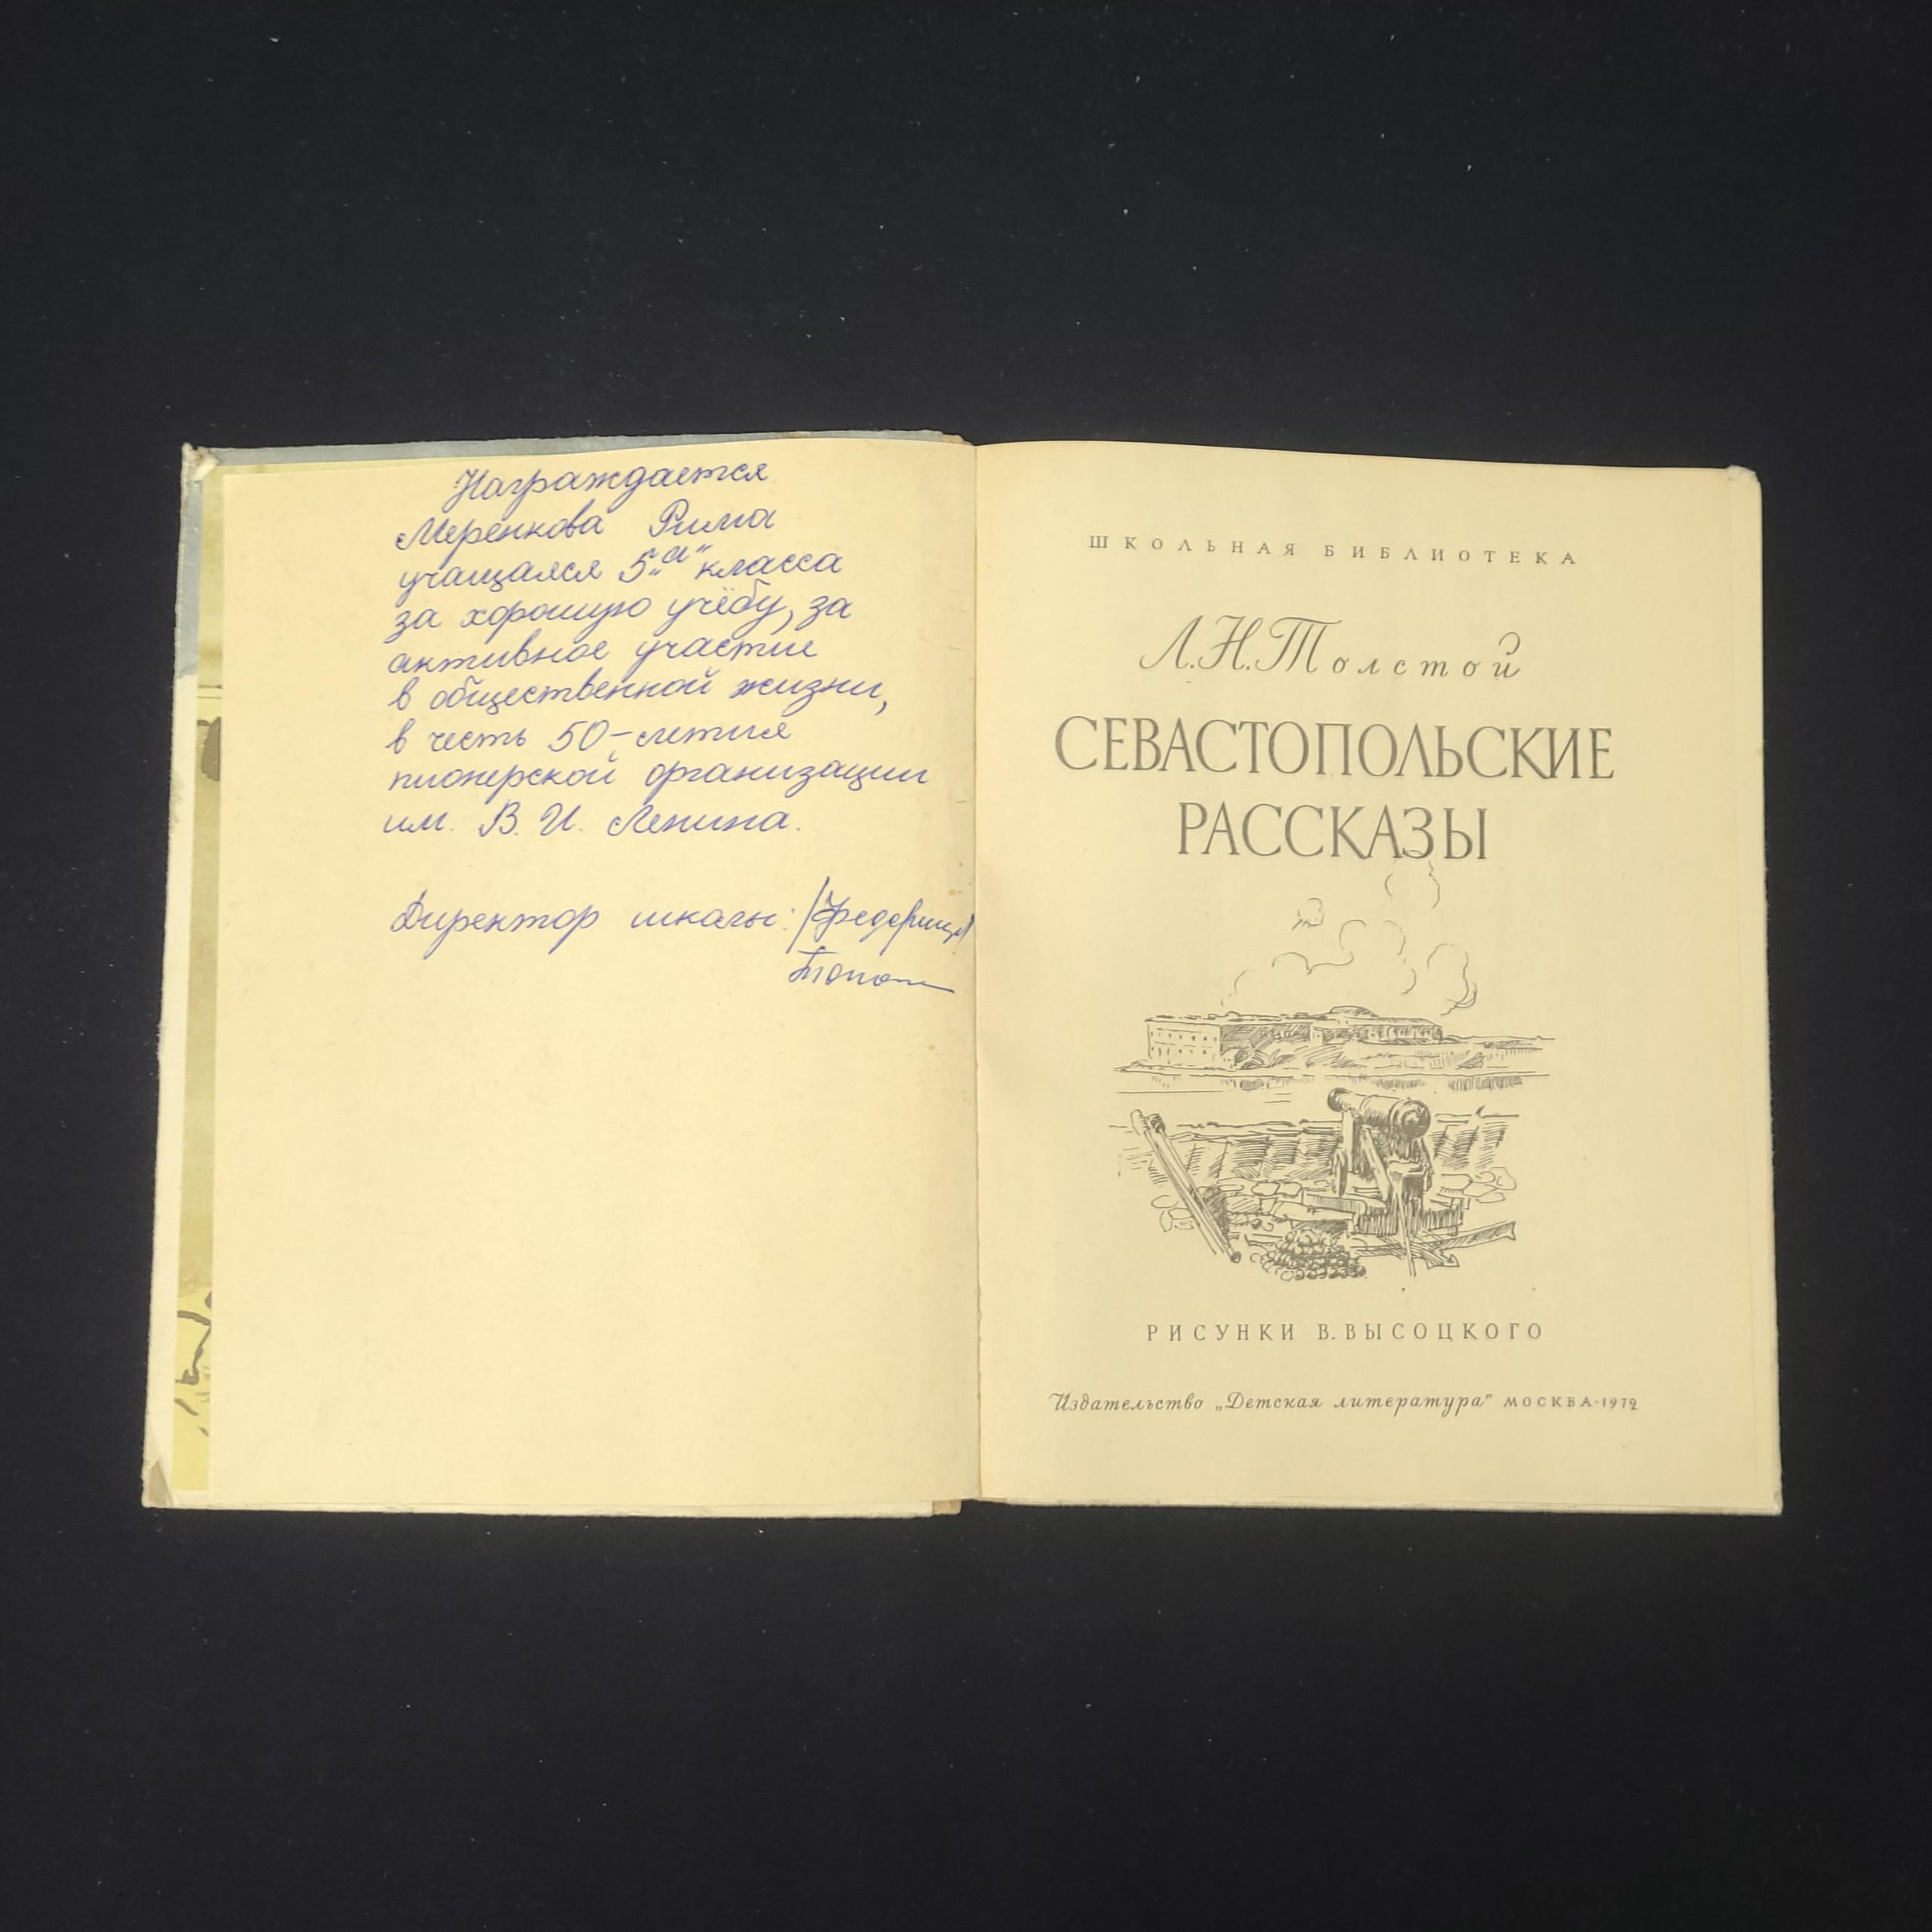 Награждается
Меренкова Рима
учащаяся 5 „а" класса
за хорошую учёбу, за
активное участие
в общественной жизни,
в честь 50-летия
пионерской организации
им. В. И. Ленина.
Директор школы:
ШКОЛЬНАЯ БИБЛИОТЕКА
Л. Н. Толстой
СЕВАСТОПОЛЬСКИЕ
РАССКАЗЫ
РИСУНКИ В. ВЫСОЦКОГО
Издательство „Детская литература" МОСКВА·1972